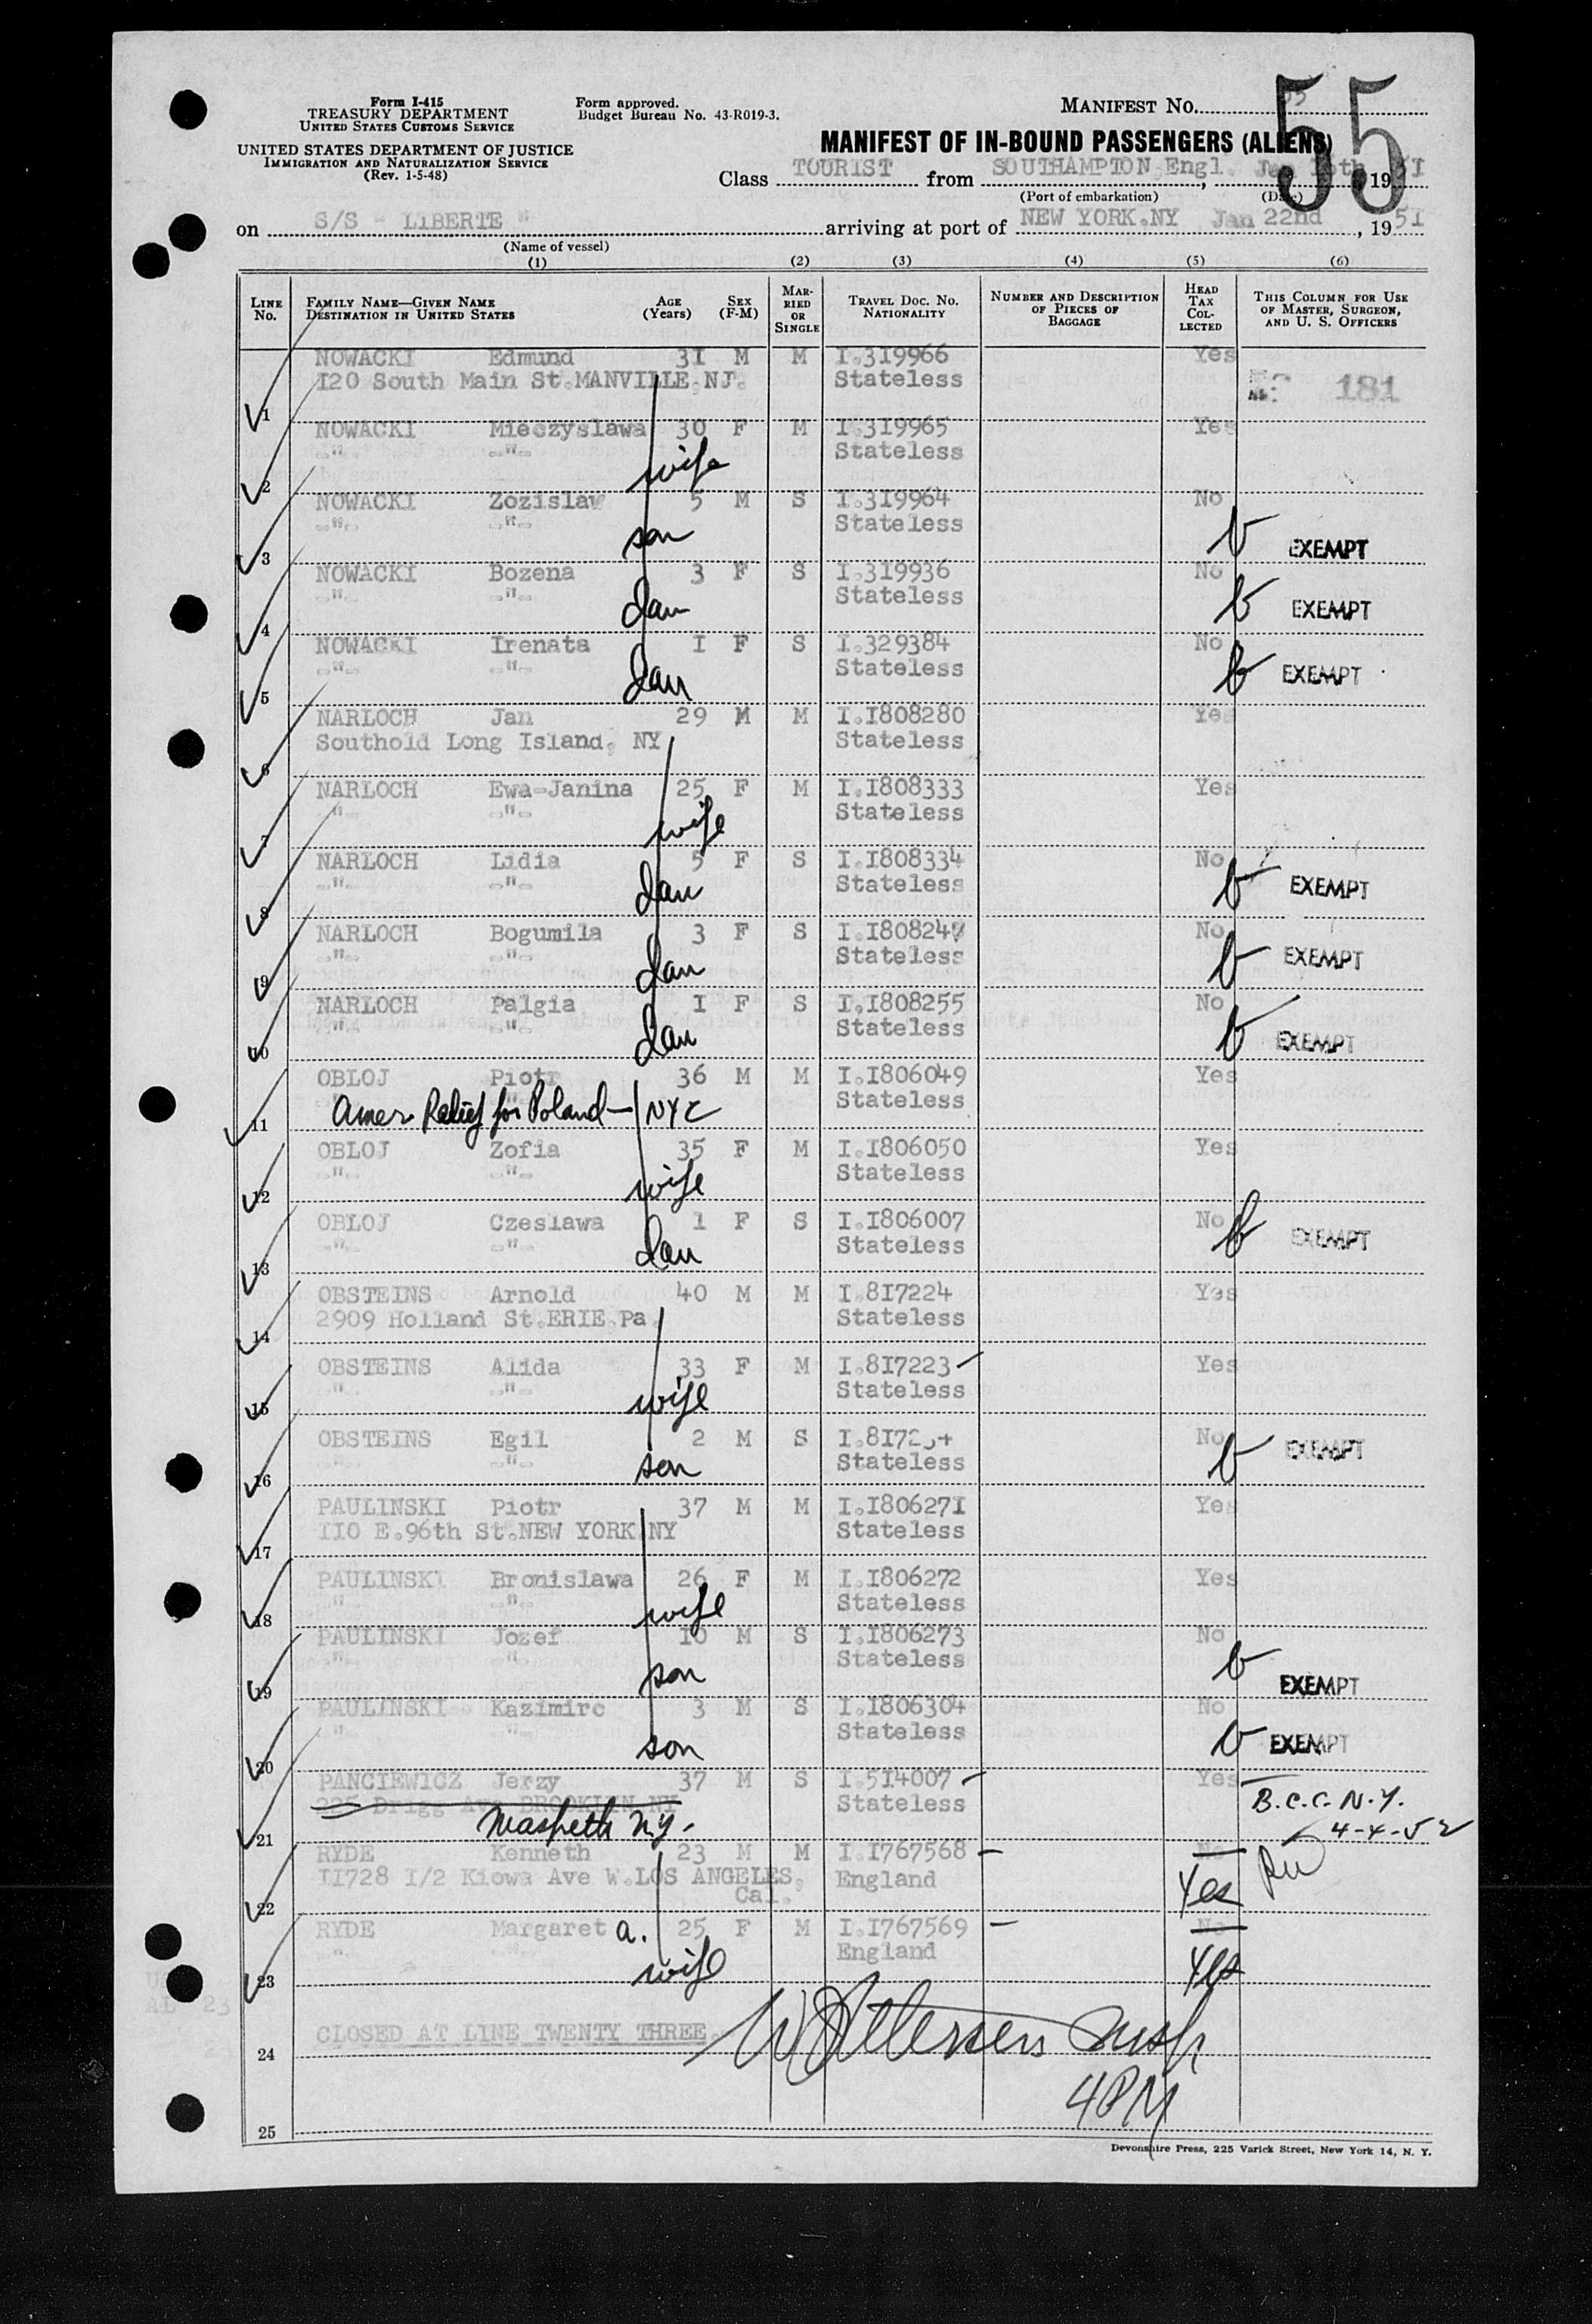 Form I-415
TREASURY DEPARTMENT
UNITED STATES CUSTOMS SERVICE
UNITED STATES DEPARTMENT OF JUSTICE
IMMIGRATION AND NATURALIZATION SERVICE
(Rev. 1-5-48)
Form approved.
Budget Bureau No. 43-R019-3.
MANIFEST NO. 55
MANIFEST OF IN-BOUND PASSENGERS (ALIENS)
Class TOURIST from SOUTHAMPTON Engl. , Jan , 1951
(Port of embarkation) (Date)
on S/S " LIBERTE " arriving at port of NEW YORK.NY Jan 22nd , 1951
(Name of vessel)
(1) (2) (3) (4) (5) (6)
LINE No. FAMILY NAME—GIVEN NAME DESTINATION IN UNITED STATES AGE (Years) SEX (F-M) MARRIED OR SINGLE TRAVEL DOC. NO. NATIONALITY NUMBER AND DESCRIPTION OF PIECES OF BAGGAGE HEAD TAX COLLECTED THIS COLUMN FOR USE OF MASTER, SURGEON, AND U. S. OFFICERS
NOWACKI Edmund 3I M M I.3I9966 Yes
1 I20 South Main St.MANVILLE.NJ. Stateless 181
NOWACKI Mieczyslawa 30 F M I.3I9965 Yes
2 -"- -"- wife Stateless
NOWACKI Zozislaw 5 M S I.3I9964 No
3 -"- -"- son Stateless EXEMPT
NOWACKI Bozena 3 F S I.3I9936 No
4 -"- -"- dau Stateless EXEMPT
NOWACKI Irenata I F S I.329384 No
5 -"- -"- dau Stateless EXEMPT
NARLOCH Jan 29 M M I.I808280 Yes
6 Southold Long Island, NY Stateless
NARLOCH Ewa-Janina 25 F M I.I808333 Yes
7 -"- -"- wife Stateless
NARLOCH Lidia 5 F S I.I808334 No
8 -"- -"- dau Stateless EXEMPT
NARLOCH Bogumila 3 F S I.I808247 No
9 -"- -"- dau Stateless EXEMPT
NARLOCH Palgia I F S I.I808255 No
10 -"- -"- dau Stateless EXEMPT
OBLOJ Piotr 36 M M I.I806049 Yes
11 Amer Relief for Poland — NYC Stateless
OBLOJ Zofia 35 F M I.I806050 Yes
12 -"- -"- wife Stateless
OBLOJ Czeslawa 1 F S I.I806007 No
13 -"- -"- dau Stateless EXEMPT
OBSTEINS Arnold 40 M M I.8I7224 Yes
14 2909 Holland St.ERIE.Pa. Stateless
OBSTEINS Alida 33 F M I.8I7223 Yes
15 -"- -"- wife Stateless
OBSTEINS Egil 2 M S No
16 -"- -"- son Stateless EXEMPT
PAULINSKI Piotr 37 M M I.I80627I Yes
17 II0 E.96th St.NEW YORK.NY Stateless
PAULINSKI Bronislawa 26 F M I.I806272 Yes
18 -"- -"- wife Stateless
PAULINSKI Jozef 10 M S I.I806273 No
19 -"- -"- son Stateless EXEMPT
PAULINSKI Kazimirc 3 M S I.I806304 No
20 -"- -"- son Stateless EXEMPT
PANCIEWICZ Jerzy 37 M S I.5I4007 Yes B.C.C. N.Y.
225 Drigg Ave BROOKLIN NY Stateless 4-4-52
21 Maspeth N.Y.
RYDE Kenneth 23 M M I.I767568 No
II728 I/2 Kiowa Ave W.LOS ANGELES. England Yes
22 Cal.
RYDE Margaret A. 25 F M I.I767569 No
23 -"- wife England Yes
CLOSED AT LINE TWENTY THREE
24
4PM
25
Devonshire Press, 225 Varick Street, New York 14, N. Y.